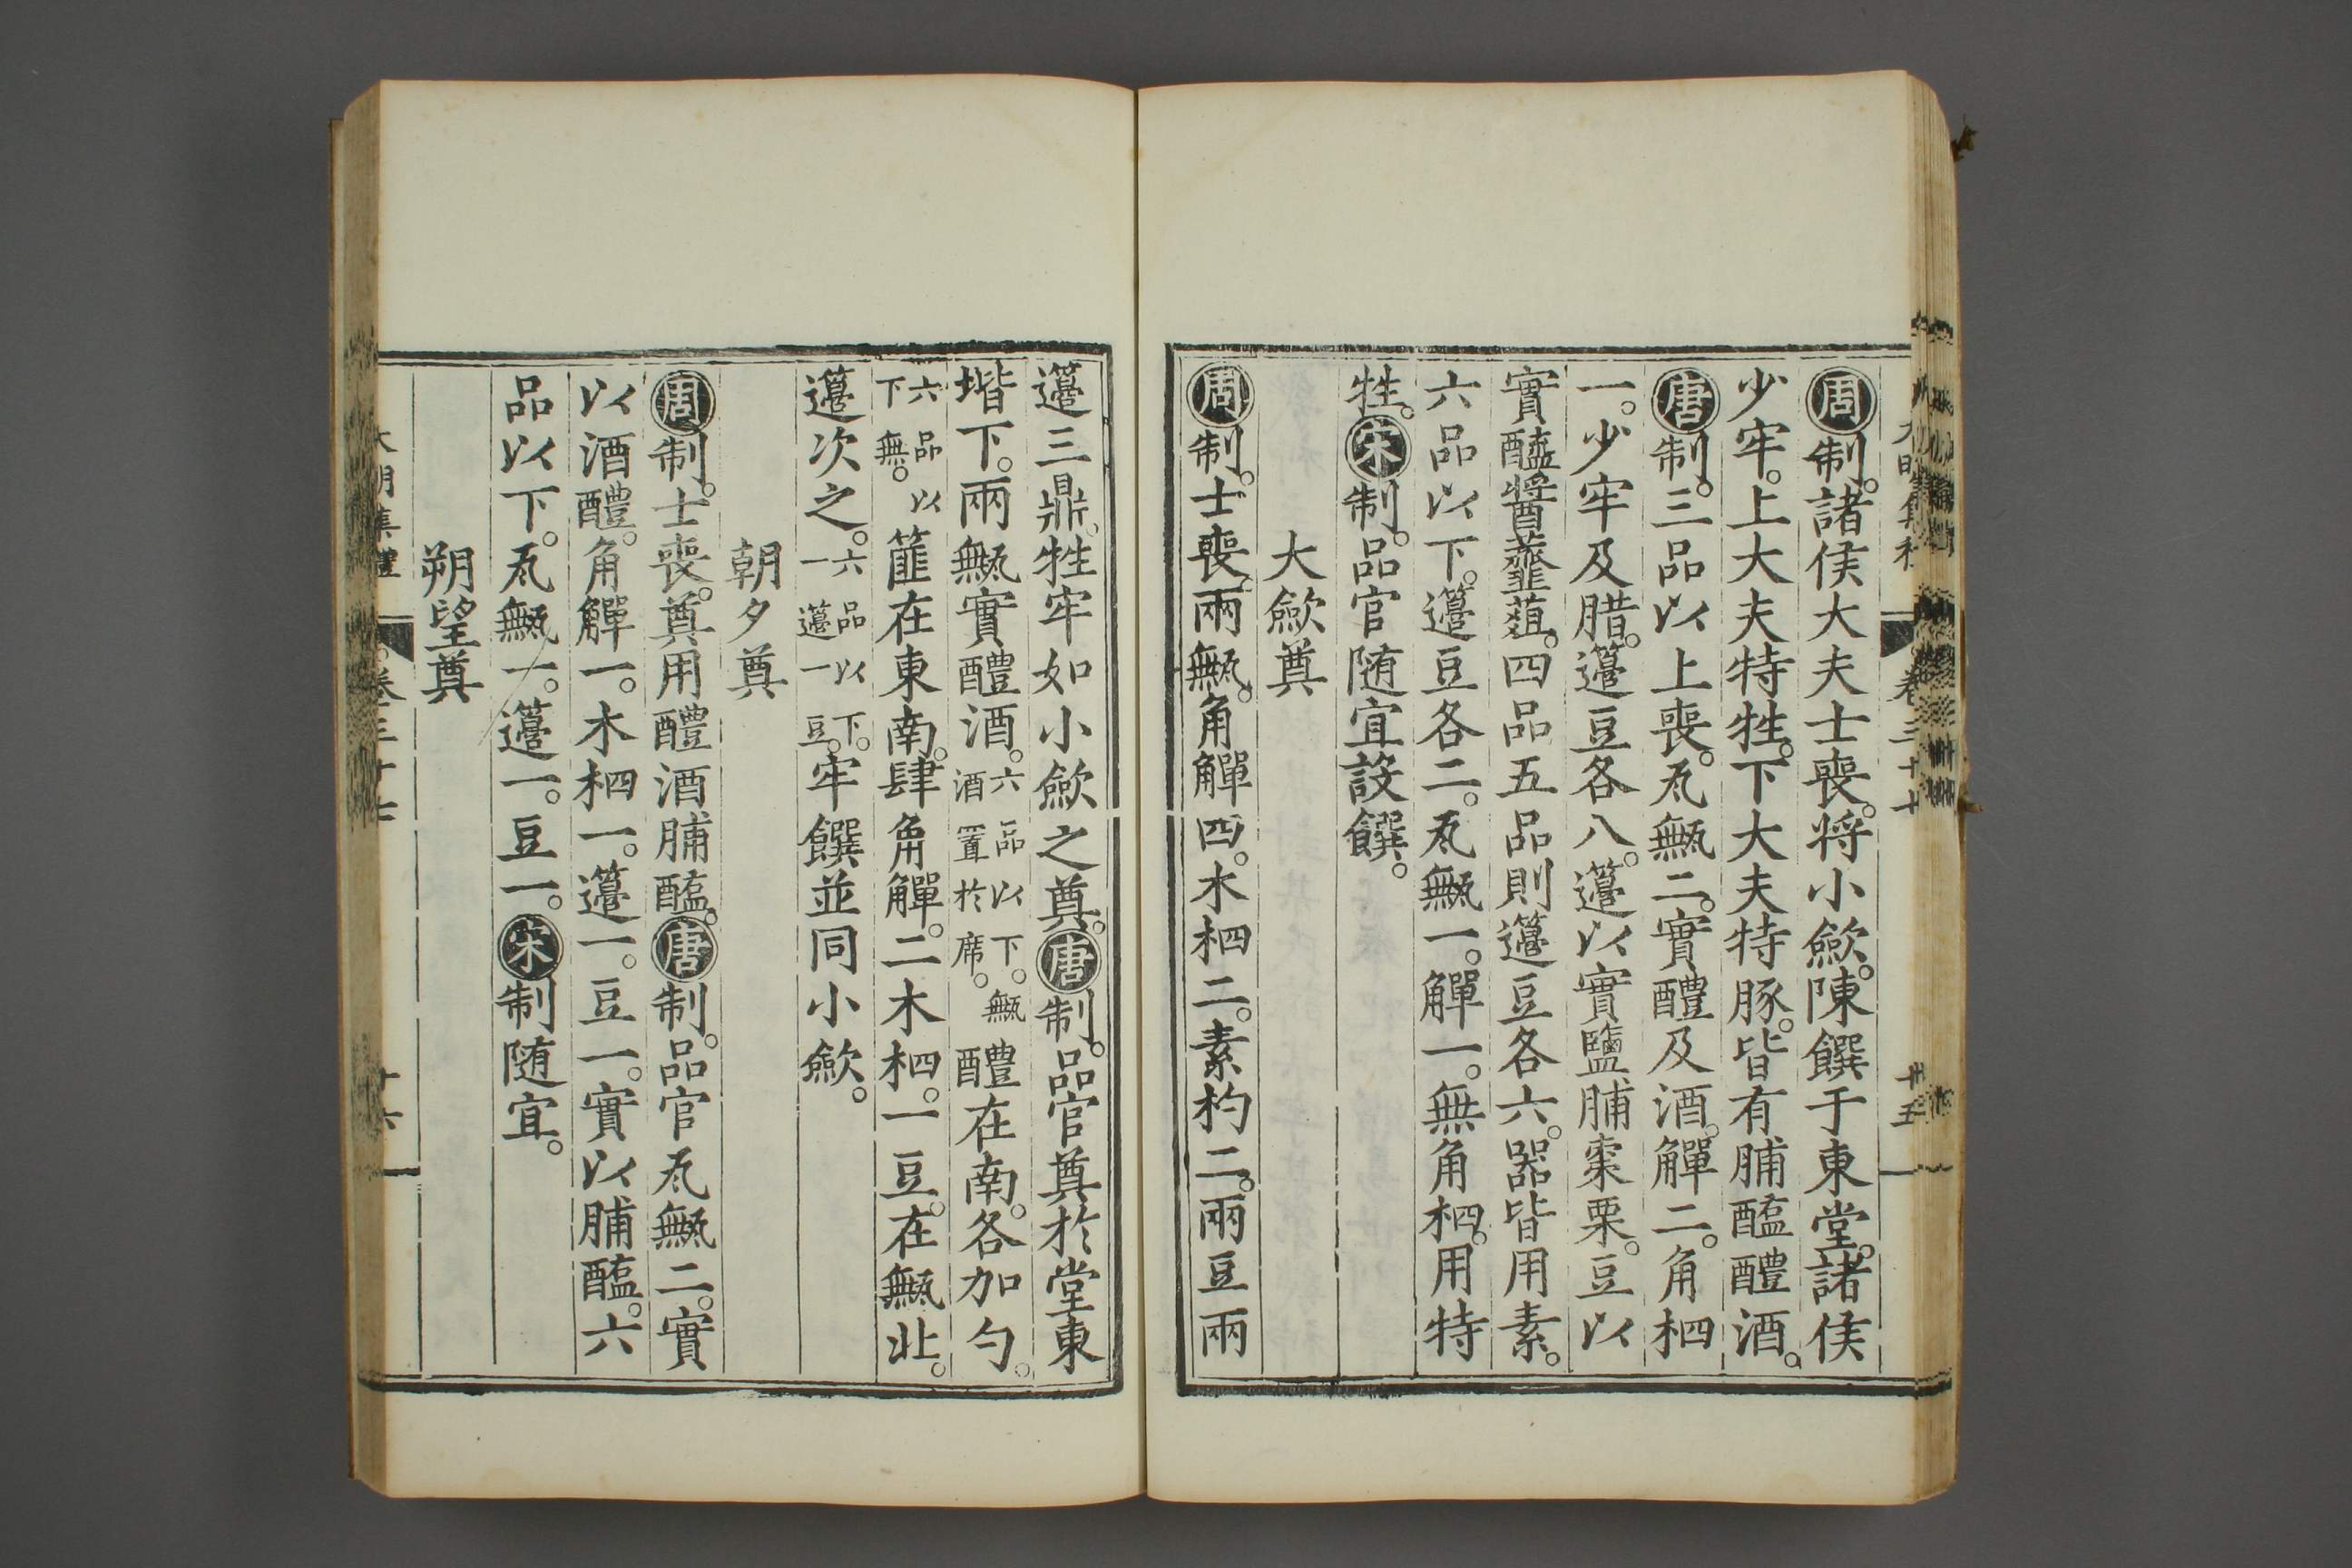 周制。諸侯大夫士喪。將小歛。陳饌于東堂。諸侯
少牢。上大夫特牲。下大夫特豚。皆有脯醢醴酒。
唐制。三品以上喪。瓦甒二。實醴及酒。觶二。角柶
一。少牢及腊。籩豆各八。籩以實鹽脯棗栗。豆以
實醯醬虀葅。四品五品則籩豆各六。器皆用素。
六品以下。籩豆各二。瓦甒一。觶一。無角柶。用特
牲。宋制。品官随宜設饌。
大歛奠
周制。士喪。兩甒。角觶四。木柶二。素杓二。兩豆兩
籩三鼎。牲牢如小歛之奠。唐制。品官奠於堂東
堦下。兩甒實醴酒。六品以下。甒酒置於席。醴在南。各加勺。
六品以下無。篚在東南。肆角觶。二木柶。一豆。在甒北。
籩次之。六品以下。一籩一豆。牢饌並同小歛。
朝夕奠
周制。士喪。奠用醴酒脯醢。唐制。品官瓦甒二。實
以酒醴。角觶一。木柶一。籩一。豆一。實以脯醢。六
品以下。瓦甒一。籩一。豆一。宋制随宜。
朔望奠
大明集禮 卷三十七 十六